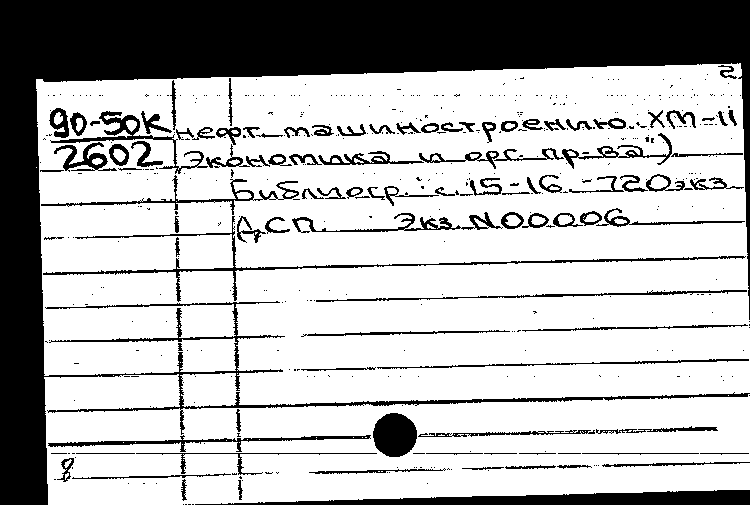 2
90-50К нефт. машиностроению. ХМ-11
2602 "Экономика и орг. пр-ва").
Библиогр.: с. 15-16. - 720экз
ДСП. Экз. N00006.
8